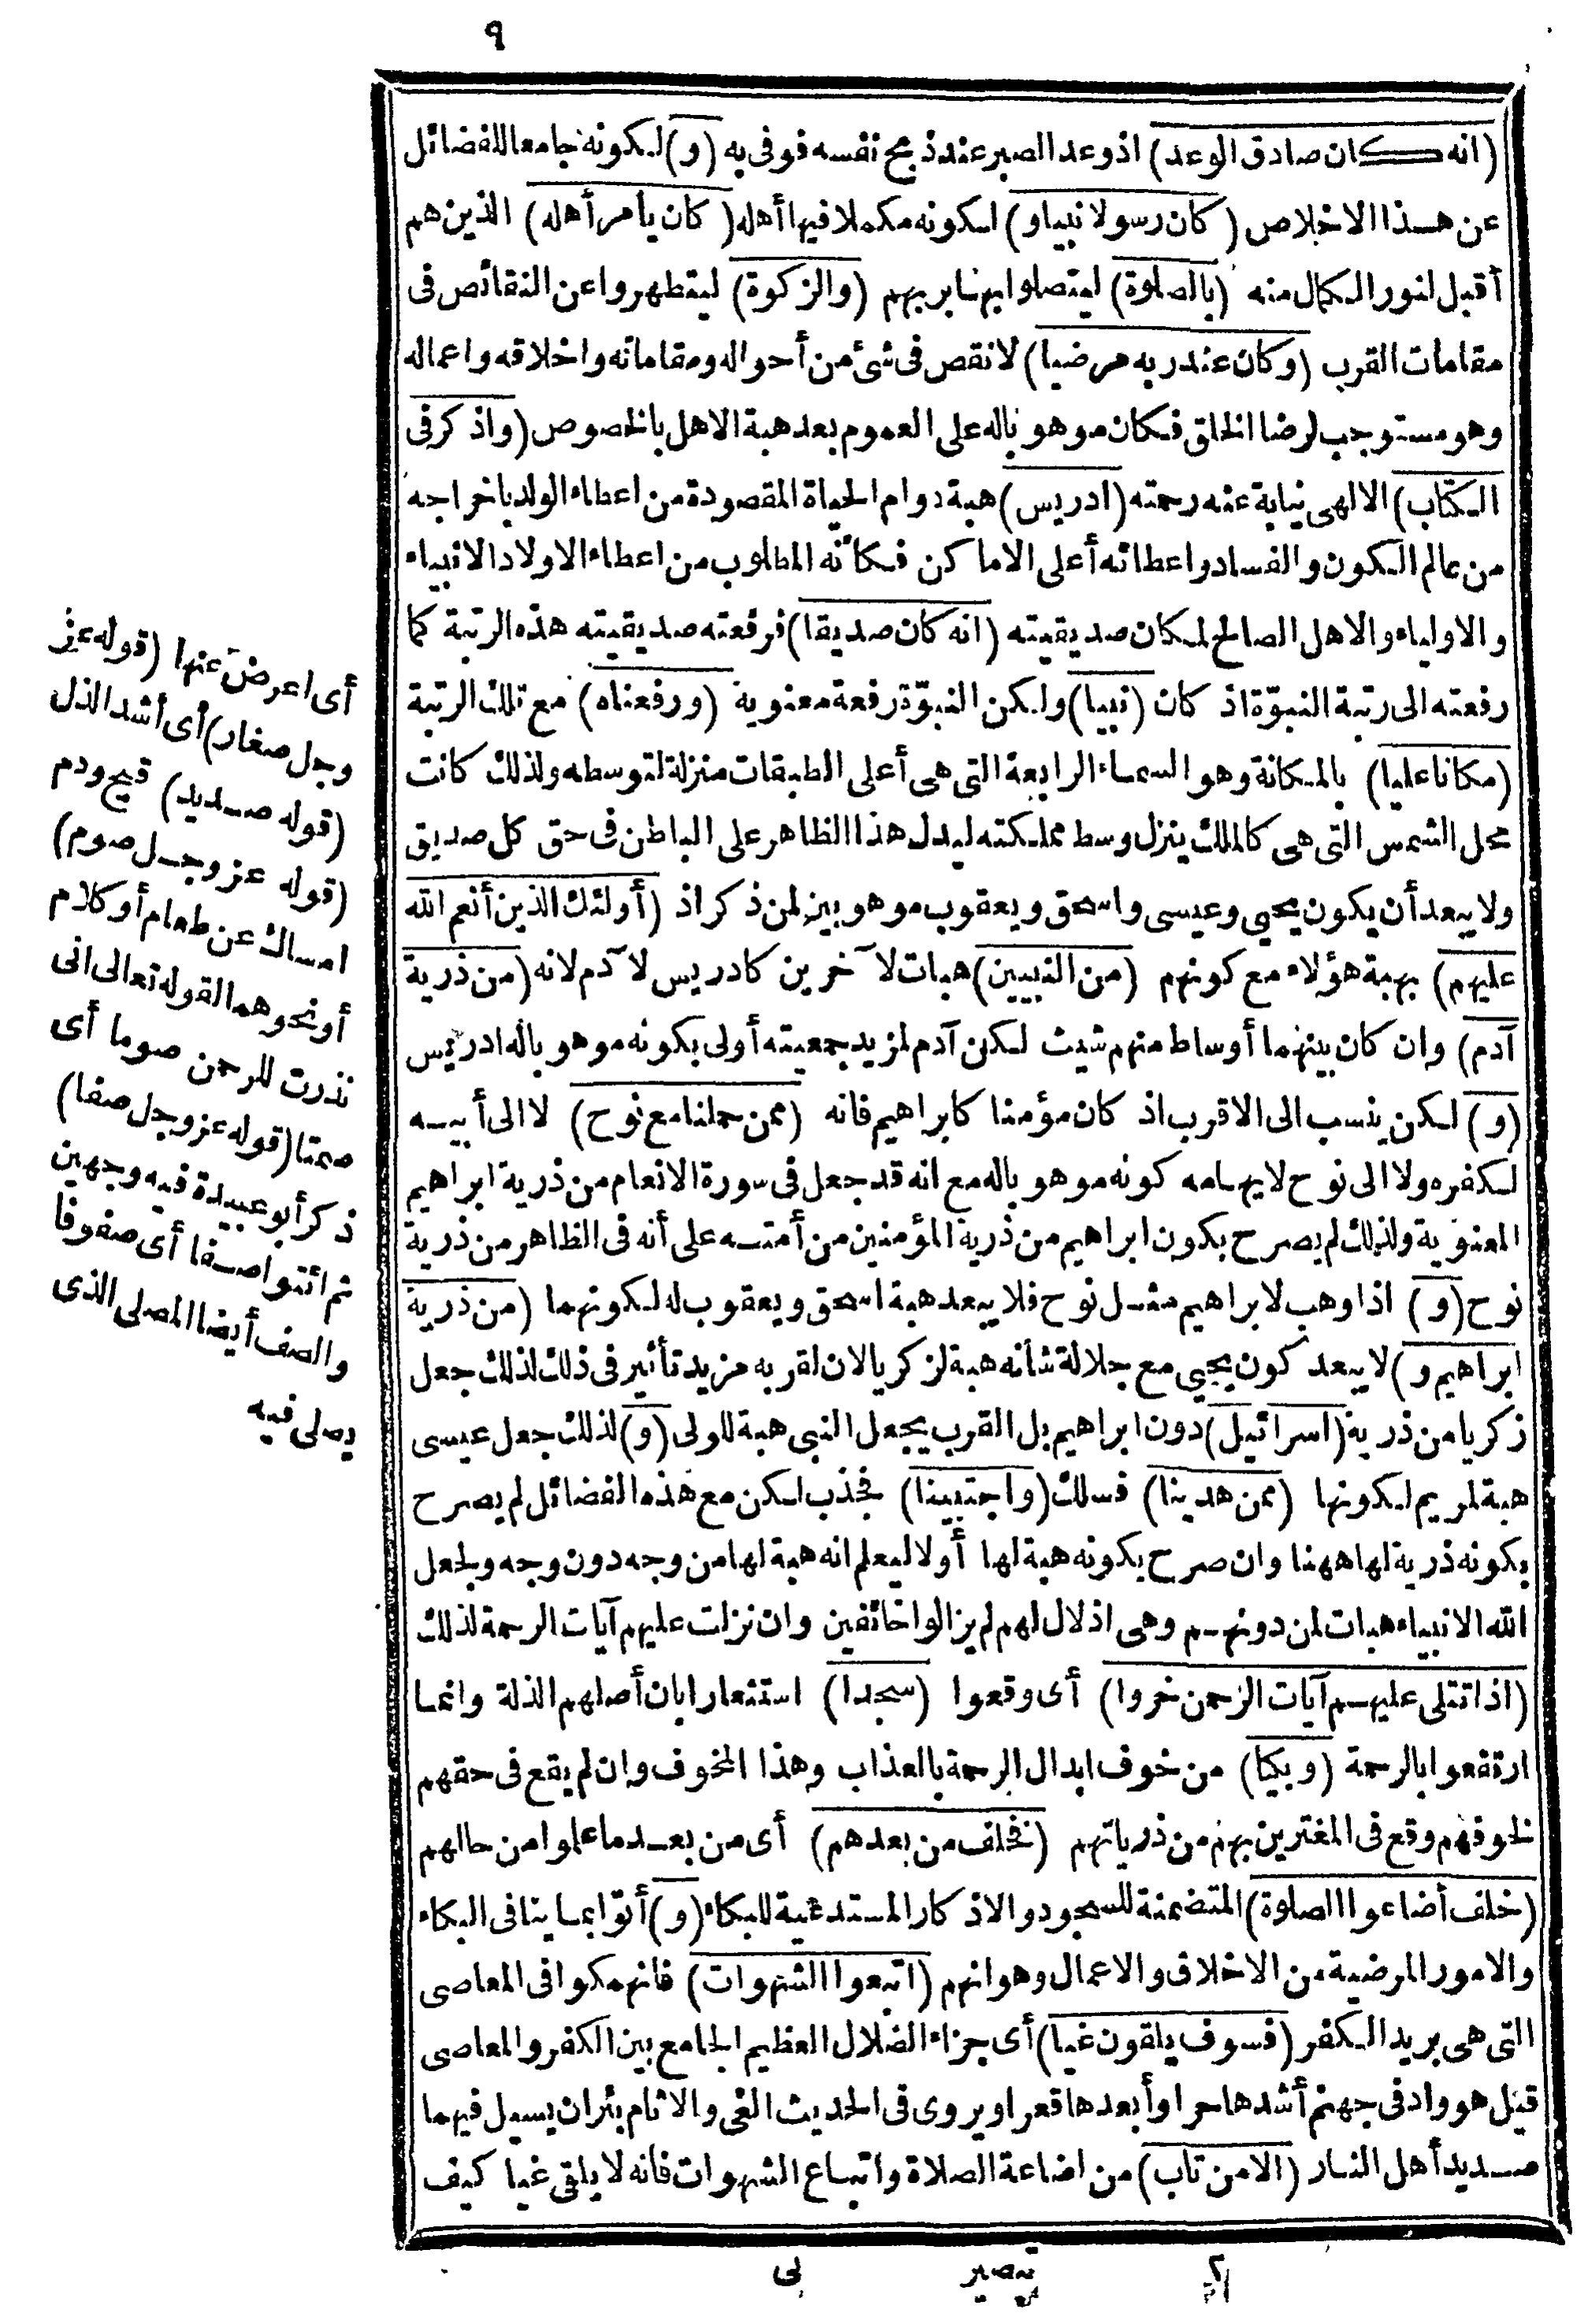 ٩
(انه كان صادق الوعد) اذ وعد الصبر عند ذبح نفسه فوفى به (و) لكونه جامعا للفضائل
عن هذا الاخلاص (كان رسولا نبيا و) لكونه مكملا فيها أهله (كان يأمر أهله) الذين هم
أقبل لنور الكمال منه (بالصلوة) ليتصلوا بها بربهم (والزكوة) ليتطهروا عن النقائص فى
مقامات القرب (وكان عند ربه مرضيا) لا نقص فى شئ من أحواله ومقاماته واخلاقه واعماله
وهو مستوجب لرضا الخلق فكان موهوبا له على العموم بعد هبة الاهل بالخصوص (واذكر فى
الكتاب) الالهى نيابة عنه رحمته (ادريس) هبة دوام الحياة المقصودة من اعطاء الولد باخراجه
من عالم الكون والفساد واعطائه أعلى الاماكن فكأنه المطلوب من اعطاء الاولاد الانبياء
والاولياء والاهل الصالح لمكان صديقيته (انه كان صديقا) فرفعته صديقيته هذه الرتبة كما
رفعته الى رتبة النبوّة اذ كان (نبيا) ولكن النبوّة رفعة معنوية (ورفعناه) مع تلك الرتبة
(مكانا عليا) بالمكانة وهو السماء الرابعة التى هى أعلى الطبقات منزلة لتوسطه ولذلك كانت
محل الشمس التى هى كالملك ينزل وسط مملكته ليدل هذا الظاهر على الباطن فى حق كل صديق
ولا يبعد أن يكون يحيى وعيسى واسحق ويعقوب موهوبين لمن ذكر اذ (أولئك الذين أنعم الله
عليهم) بهبة هؤلاء مع كونهم (من النبيين) هبات لآخرين كادريس لآدم لانه (من ذرية
آدم) وان كان بينهما أوساط منهم شيث لكن آدم لمزيد جمعيته أولى بكونه موهوبا له ادريس
(و) لكن ينسب الى الاقرب اذ كان مؤمنا كابراهيم فانه (ممن حملنا مع نوح) لا الى أبيه
لكفره ولا الى نوح لايهامه كونه موهوبا له مع انه قد جعل فى سورة الانعام من ذرية ابراهيم
المعنوية ولذلك لم يصرح بكون ابراهيم من ذرية المؤمنين من أمته على أنه فى الظاهر من ذرية
نوح (و) اذا وهب لابراهيم مثل نوح فلا يبعد هبة اسحق ويعقوب له لكونهما (من ذرية
ابراهيم و) لا يبعد كون يحيى مع جلالة شأنه هبة لزكريا لان لقربه مزيد تأثير فى ذلك لذلك جعل
زكريا من ذرية (اسرائيل) دون ابراهيم بل القرب يجعل النبى هبة للولى (و) لذلك جعل عيسى
هبة لمريم لكونها (ممن هدينا) فسلك (واجتبينا) فجذب لكن مع هذه الفضائل لم يصرح
بكونه ذرية لها ههنا وان صرح بكونه هبة لها أولا ليعلم انه هبة لها من وجه دون وجه ولجعل
الله الانبياء هبات لمن دونهم وهى اذلال لهم لم يزالوا خائفين وان نزلت عليهم آيات الرحمة لذلك
(اذا تتلى عليهم آيات الرحمن خروا) أى وقعوا (سجدا) استشعارا بان أصلهم الذلة وانما
ارتفعوا بالرحمة (وبكيا) من خوف ابدال الرحمة بالعذاب وهذا المخوف وان لم يقع فى حقهم
لخوفهم وقع فى المغترين بهم من ذرياتهم (فخلف من بعدهم) أى من بعد ما علموا من حالهم
(خلف أضاعوا الصلوة) المتضمنة للسجود والاذكار المستدعية للبكاء (و) أتوا بما ينافى البكاء
والامور المرضية من الاخلاق والاعمال وهو انهم (اتبعوا الشهوات) فانهمكوا فى المعاصى
التى هى بريد الكفر (فسوف يلقون غيا) أى جزاء الضلال العظيم الجامع بين الكفر والمعاصى
قيل هو واد فى جهنم أشدها حرا وأبعدها قعرا ويروى فى الحديث الغى والاثام بئران يسيل فيهما
صديد أهل النار (الا من تاب) من اضاعة الصلاة واتباع الشهوات فانه لا يلقى غيا كيف
أى اعرض عنها (قوله عز
وجل صغار) أى أشد الذل
(قوله صديد) قيح ودم
(قوله عز وجل صوم)
امساك عن طعام أو كلام
أو نحوهما لقوله تعالى انى
نذرت للرحمن صوما أى
صمتا (قوله عز وجل صفا)
ذكر أبو عبيدة فيه وجهين
ثم ائتوا صفا أى صفوفا
والصف أيضا المصلى الذى
يصلى فيه
٢ تبصير نى